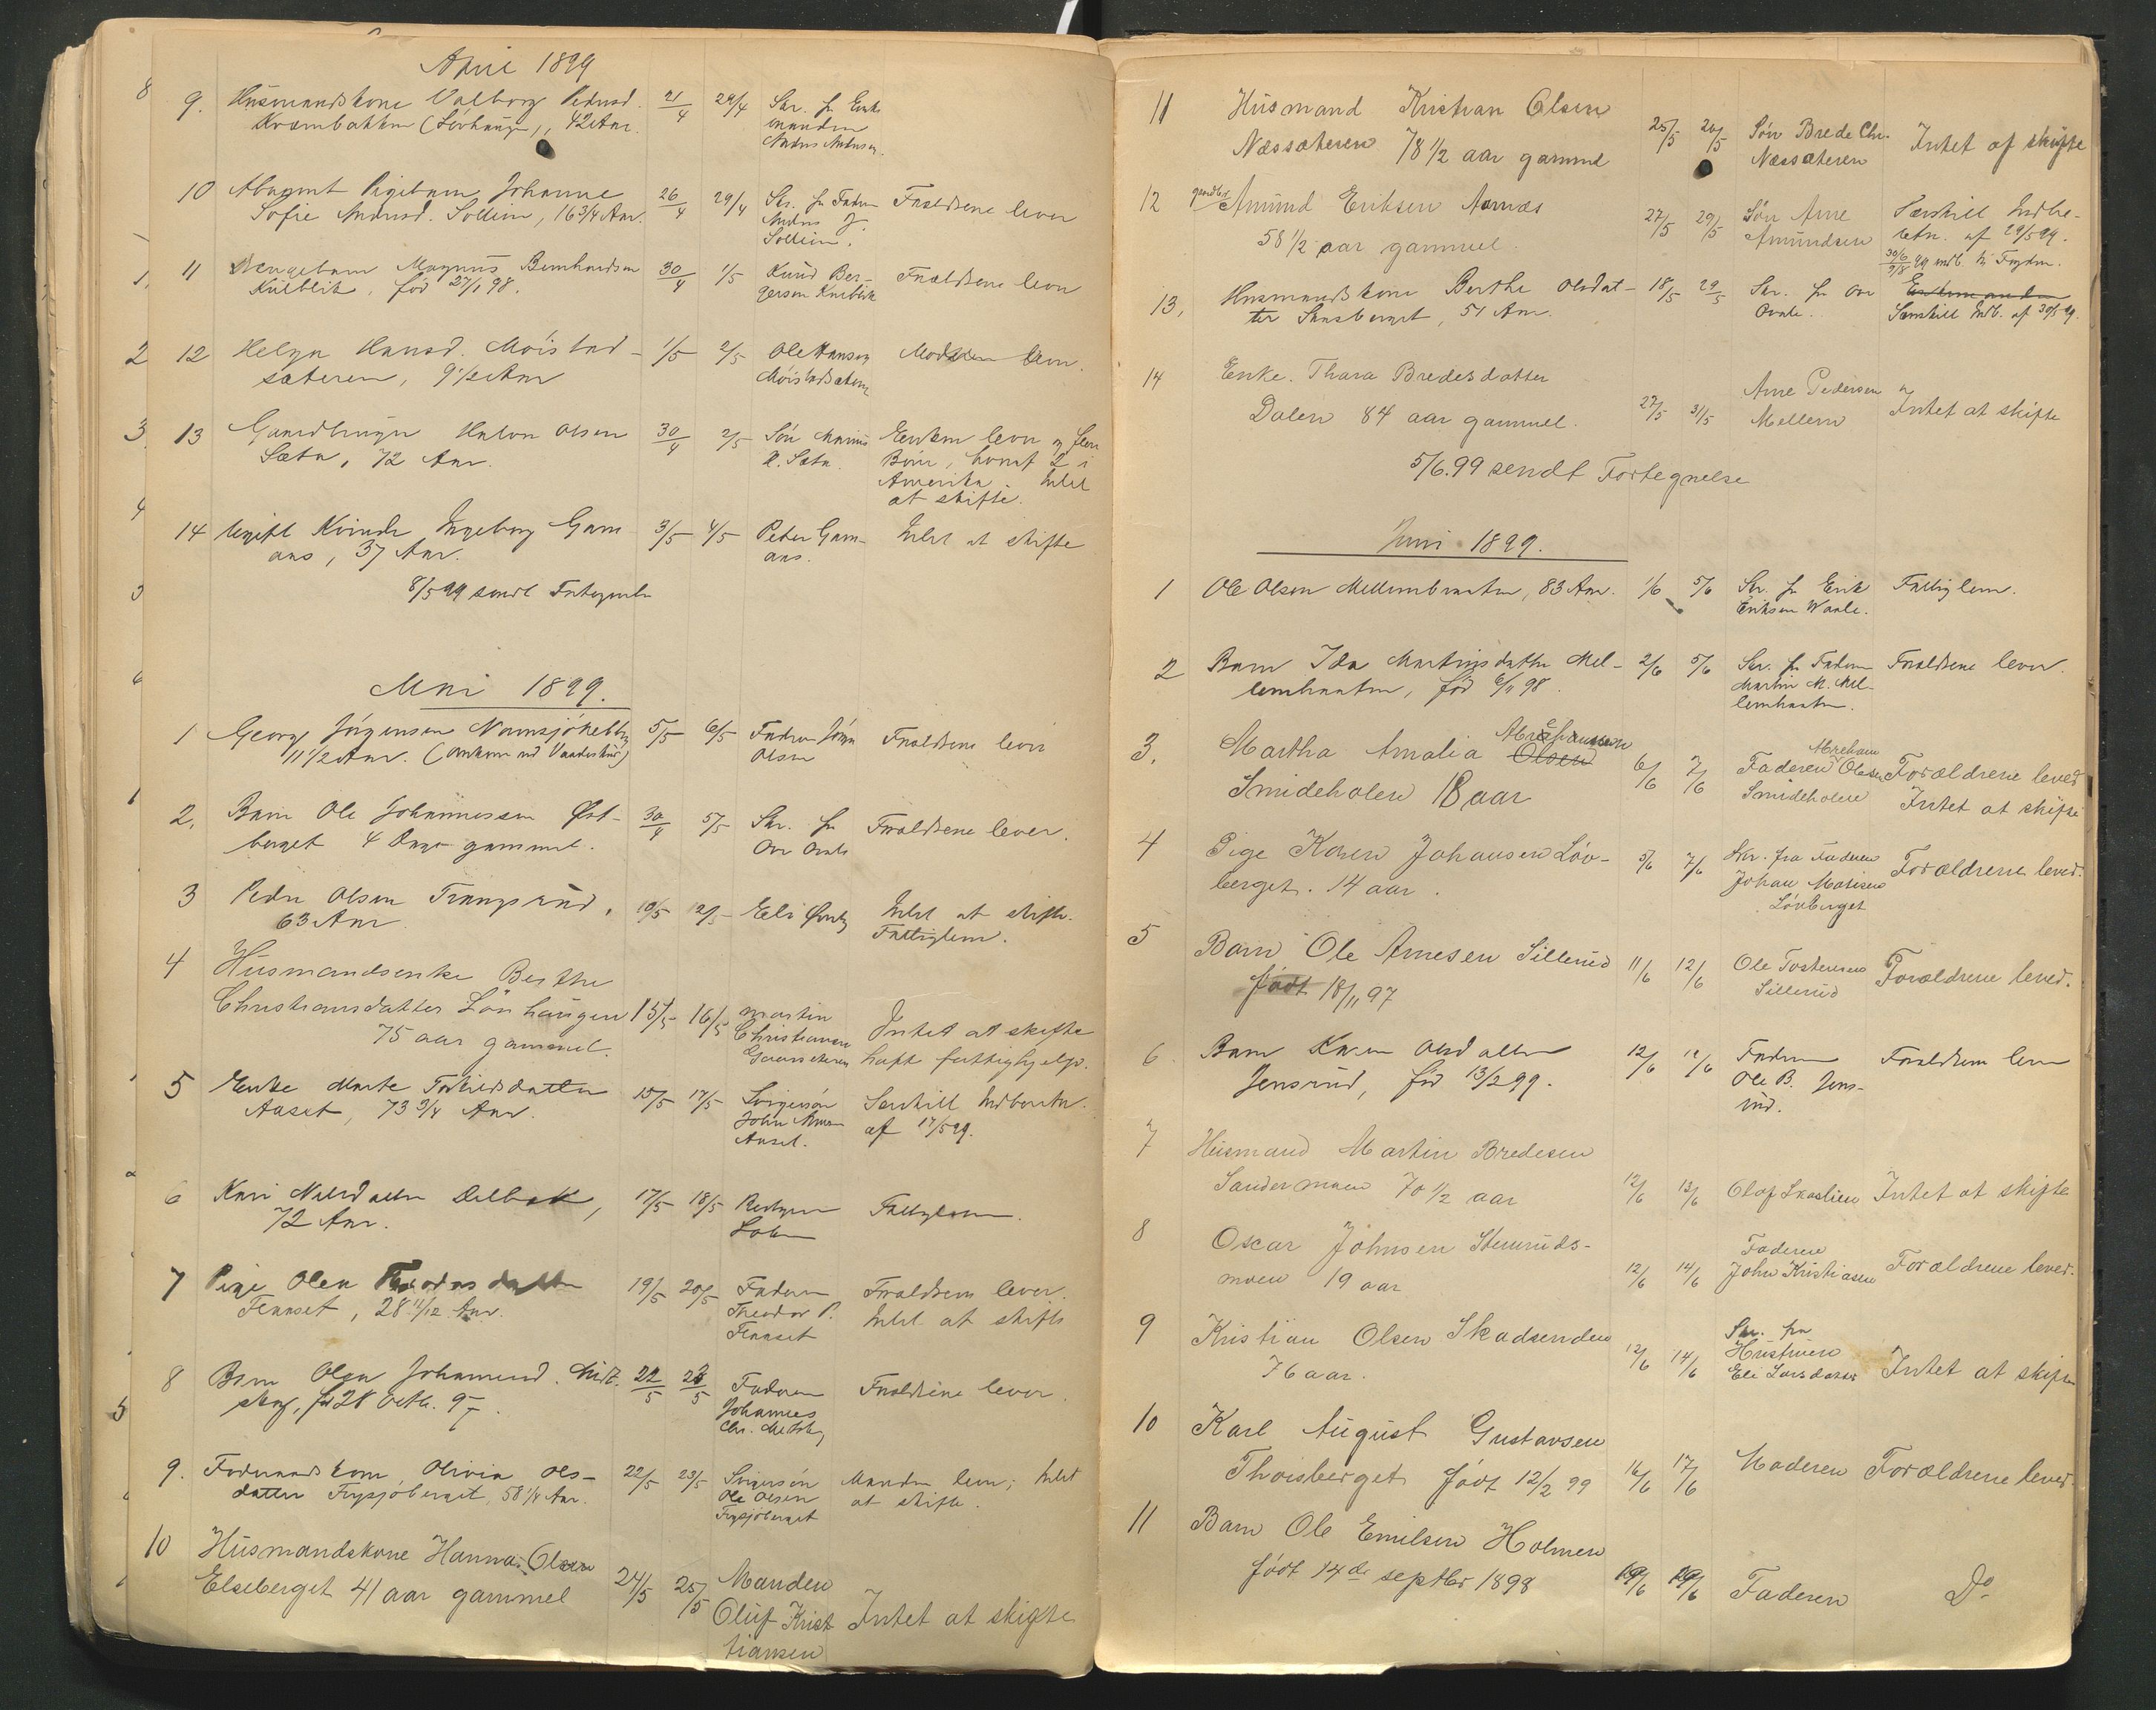 April 1899
9. Husmandskone Valborg Pedersd. 21/4 29/4 Skr. fr. Enke
Krambakken (Løvhaugen), 42 Aar. manden
Andres Andersen.
10 Pigebarn Johanne 26/4 29/4 Skr. fr. Fadren Forældrene lever
Sofie Andersd. Sollien, 16 3/4 Aar. Andres J.
Sollien.
11 Drengebarn Magnus Bernhardsen 30/4 1/5 Knud Ber- Forældrene lever
Kulblik, fød 27/1 98. gersen Kulblik
12 Helga Hansd. Moistad- 1/5 2/5 Ole Hansen Moderen lever.
sæteren, 9 1/2 Aar Moistadsæteren
13 Gaardbruger Halvor Olsen 30/4 2/5 Søn Marius Enken lever og flere
Sætra, 72 Aar. H. Sætra. Børn, hvoraf 2 i
Amerika. Intet
at skifte.
14 Ugift Kvinde Ingeborg Gam- 3/5 4/5 Peter Gam- Intet at skifte
aas, 37 Aar. aas.
8/5 99 sendt Fortegnelse
Mai 1899.
1 Georg Jørgensen 5/5 6/5 Fadren Jørgen Forældrene lever
11 1/2 Aar. (omkom ved Vaadeskud) Olsen
2. Barn Ole Johannessen Øst- 30/4 5/5 Skr. fr. Forældrene lever.
berget 4 Dage gammel.
3 Peder Olsen Trangsrud, 10/5 12/5 Eli Intet at skifte.
63 Aar Fattiglem.
4 Husmandsenke Berthe
Christiansdatter Lønhaugen 15/5 16/5 Martin Intet at skifte
75 aar gammel. Christiansen haft fattighjelp.
5 Enke Marte Torkildsdatter 15/5 17/5 Svigersøn Særskilt Indberetn.
Aaset, 73 3/4 Aar. John af 17/5 99.
Aaset.
6 Kari Nilsdatter Delbæk, 17/5 18/5 Fattiglem.
72 Aar.
7 Pige Olea Theodorsdatter 19/5 20/5 Fadren Forældrene lever.
Finaset, 28 11/12 Aar. Theodor P. Intet at skifte
Finaset
8 Barn Olga Johannesd. 22/5 23/5 Fadren Forældrene lever.
fød 28 Octb. 97. Johannes
Chr.
9. Fodermandskone Olivia Ols- 22/5 23/5 Svigersøn Manden lever; Intet
datter Frysjøberget, 58 1/4 Aar. Ole Olsen at skifte.
Frysjøberget
10 Husmandskone Hanna Olsen
Elseberget 41 aar gammel 24/5 25/5 Manden
Oluf Krist Intet at skifte
tiansen
11 Husmand Kristian Olsen
Næssæteren 78 1/2 aar gammel 25/5 26/5 Søn Brede Chr. Intet af skifte
Næssæteren
12 gaardbr. Amund Eriksen Aarnæs 27/5 29/5 Søn Arne Særskilt Indbe-
58 1/2 aar gammel. Amundsen retn. af 29/5 99.
30/6
9/8 99 indb. til Fogden.
13. Husmandskone Berthe Olsdat- 18/5 29/5 Skr. fr. Enkemanden
ter 51 Aar. Særskilt Indb. af 30/5 99.
14 Enke. Thara Bredesdatter
Dalen 84 aar gammel. 27/5 31/5 Arne Pedersen Intet at skifte
Mellem
5/6.99 sendt Fortegnelse
Juni 1899.
1 Ole Olsen Mellembraaten, 83 Aar. 1/6 5/6 Skr. fr. Erik Fattiglem.
Eriksen Waale.
2 Barn Ida Martinsdatter Mel- 2/6 5/6 Skr. fr. Fadren Forældrene lever.
lembraaten, fød 6/11 98. Martin M. Mel-
lembraaten.
3. Martha Amalia Olsen Abrahamsen 6/6 7/6 Faderen Abraham Olesen Forældrene lever
Smideholen 18 aar Smideholen Intet at skifte
4 Pige Karen Johansen Løv- 5/6 7/6 Skr. fra Faderen Forældrene lever.
berget. 14 aar. Johan Matisen
Løvberget
5 Barn Ole Arnesen Sillerud 11/6 12/6 Ole Tostensen Forældrene lever.
født 18/11 97 Sillerud
6. Barn Karen Olsdatter 12/6 12/6 Fadren Forældrene lever
Jensrud, fød 13/2 99. Ole B. Jens-
rud.
7 Husmand Martin Bredesen
Sandermoen 70 1/2 aar 12/6 13/6 Olaf Skaslien Intet at skifte
8 Oscar Johnsen Stemruds-
moen 19 aar 12/6 14/6 Faderen Forældrene lever.
John Kristiasen
9 Kristian Olsen Skadsenden 12/6 14/6 Skr. fra
76 aar. Hustruen Intet at skifte
Eli Larsdatter
10 Karl August Gustavsen
Thoisberget født 12/2 99 16/6 17/6 Moderen Forældrene lever.
11 Barn Ole Emilsen Holmen
født 14de septbr 1898 19/6 19/6 Faderen Do